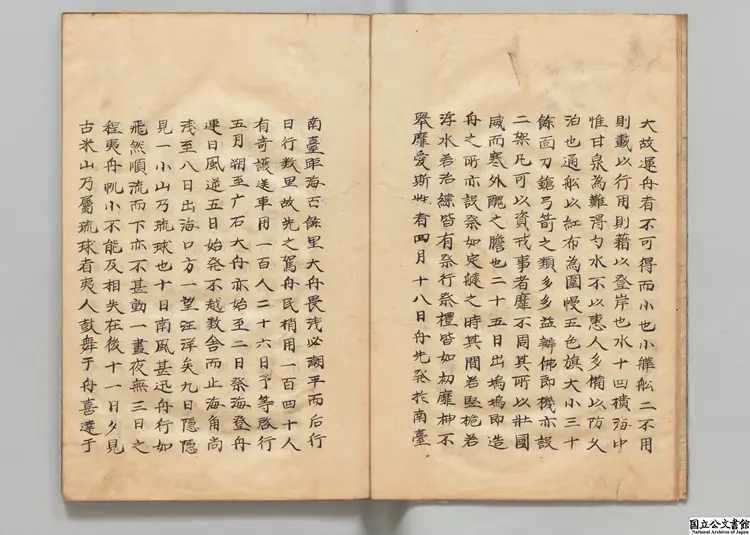 大故運舟者不可得而小也小艜舩二不用
則載以行用則藉以登岸也水十四櫃海中
惟甘泉為難得勺水不以惠人多備以防久
泊也通舩以紅布為圍幔五色旗大小三十
餘面刀鎗弓箭之類多多益辦佛即機亦設
二架凡可以資戎事者靡不周其所以壯國
威而寒外醜之膽也二十五日出塢塢即造
舟之所亦設祭如定䑧之時其間若竪桅若
浮水若治纜皆有祭行祭禮皆如初靡神不
舉靡愛斯牲者四月十八日舟先發於南臺
南臺距海百餘里大舟畏淺必潮平而后行
日行数里故先之駕舟民梢用一百四十人
有奇護送軍用一百人二十六日予等啟行
五月朔至广石大舟亦始至二日祭海登舟
連日風逆五日始発不越数舍而止海角尚
淺至八日出海口方一望汪洋矣九日隱隱
見一小山乃琉球也十日南風甚迅舟行如
飛然順流而下亦不甚動一晝夜無三日之
程夷舟帆小不能及相失在後十一日夕見
古米山乃屬琉球者夷人鼓舞于舟喜達于
国立公文書館
National Archives of Japan